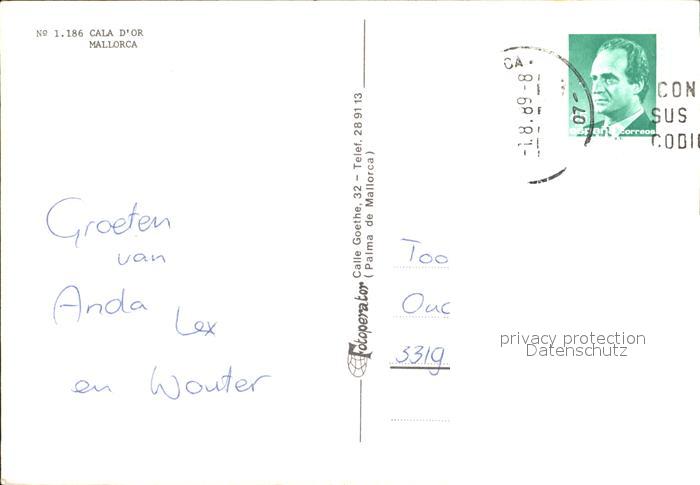 Nº 1.186 CALA D'OR
MALLORCA
Groeten
van
Anda
Lex
en Wouter
Fotoperator Calle Goethe, 32 - Telef. 28 91 13
(Palma de Mallorca)
CA.
-1.8.89-8
07-
españa correos
CON
SUS
CODI
Too
Ouc
3319
privacy protection
Datenschutz